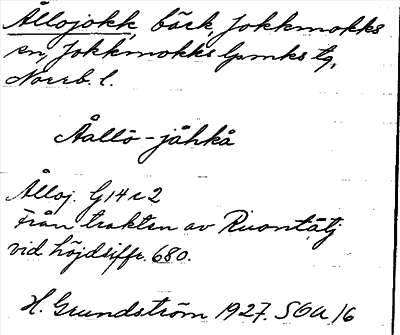 Ållojokk, bäck, Jokkmokks
sn, Jokkmokks lpmks tg,
Norrb. l.
Åallō-jåhkå
Ålloj. G14c2
Från trakten av Ruontåtj
vid höjdsiffr. 680.
H. Grundström 1927. SOA 16